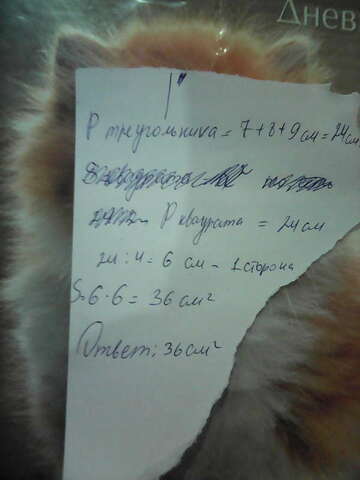 Днев
P треугольника = 7+8+9 см = 24 см
P квадрата = 24 см
24 : 4 = 6 см - 1 сторона
S = 6 · 6 = 36 см²
Ответ: 36 см²